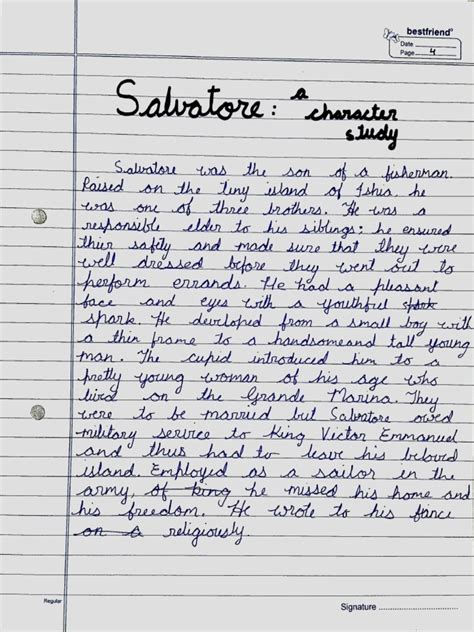 bestfriend®
Date
Page 4
Salvatore: a
character
study
Salvatore was the son of a fisherman.
Raised on the tiny island of Ishia, he
was one of three brothers. He was a
responsible elder to his siblings; he ensured
thier safety and made sure that they were
well dressed before they went out to
perform errands. He had a pleasant
face and eyes with a youthful spark
spark. He developed from a small boy with
a thin frame to a handsomeand tall young
man. The cupid introduced him to a
pretty young woman of his age who
lived on the Grande Marina. They
were to be married but Salvatore owed
military service to King Victor Emmanuel
and thus had to leave his beloved
island. Employed as a sailor in the
army, of king he missed his home and
his freedom. He wrote to his fiance
on a religiously.
Regular
Signature